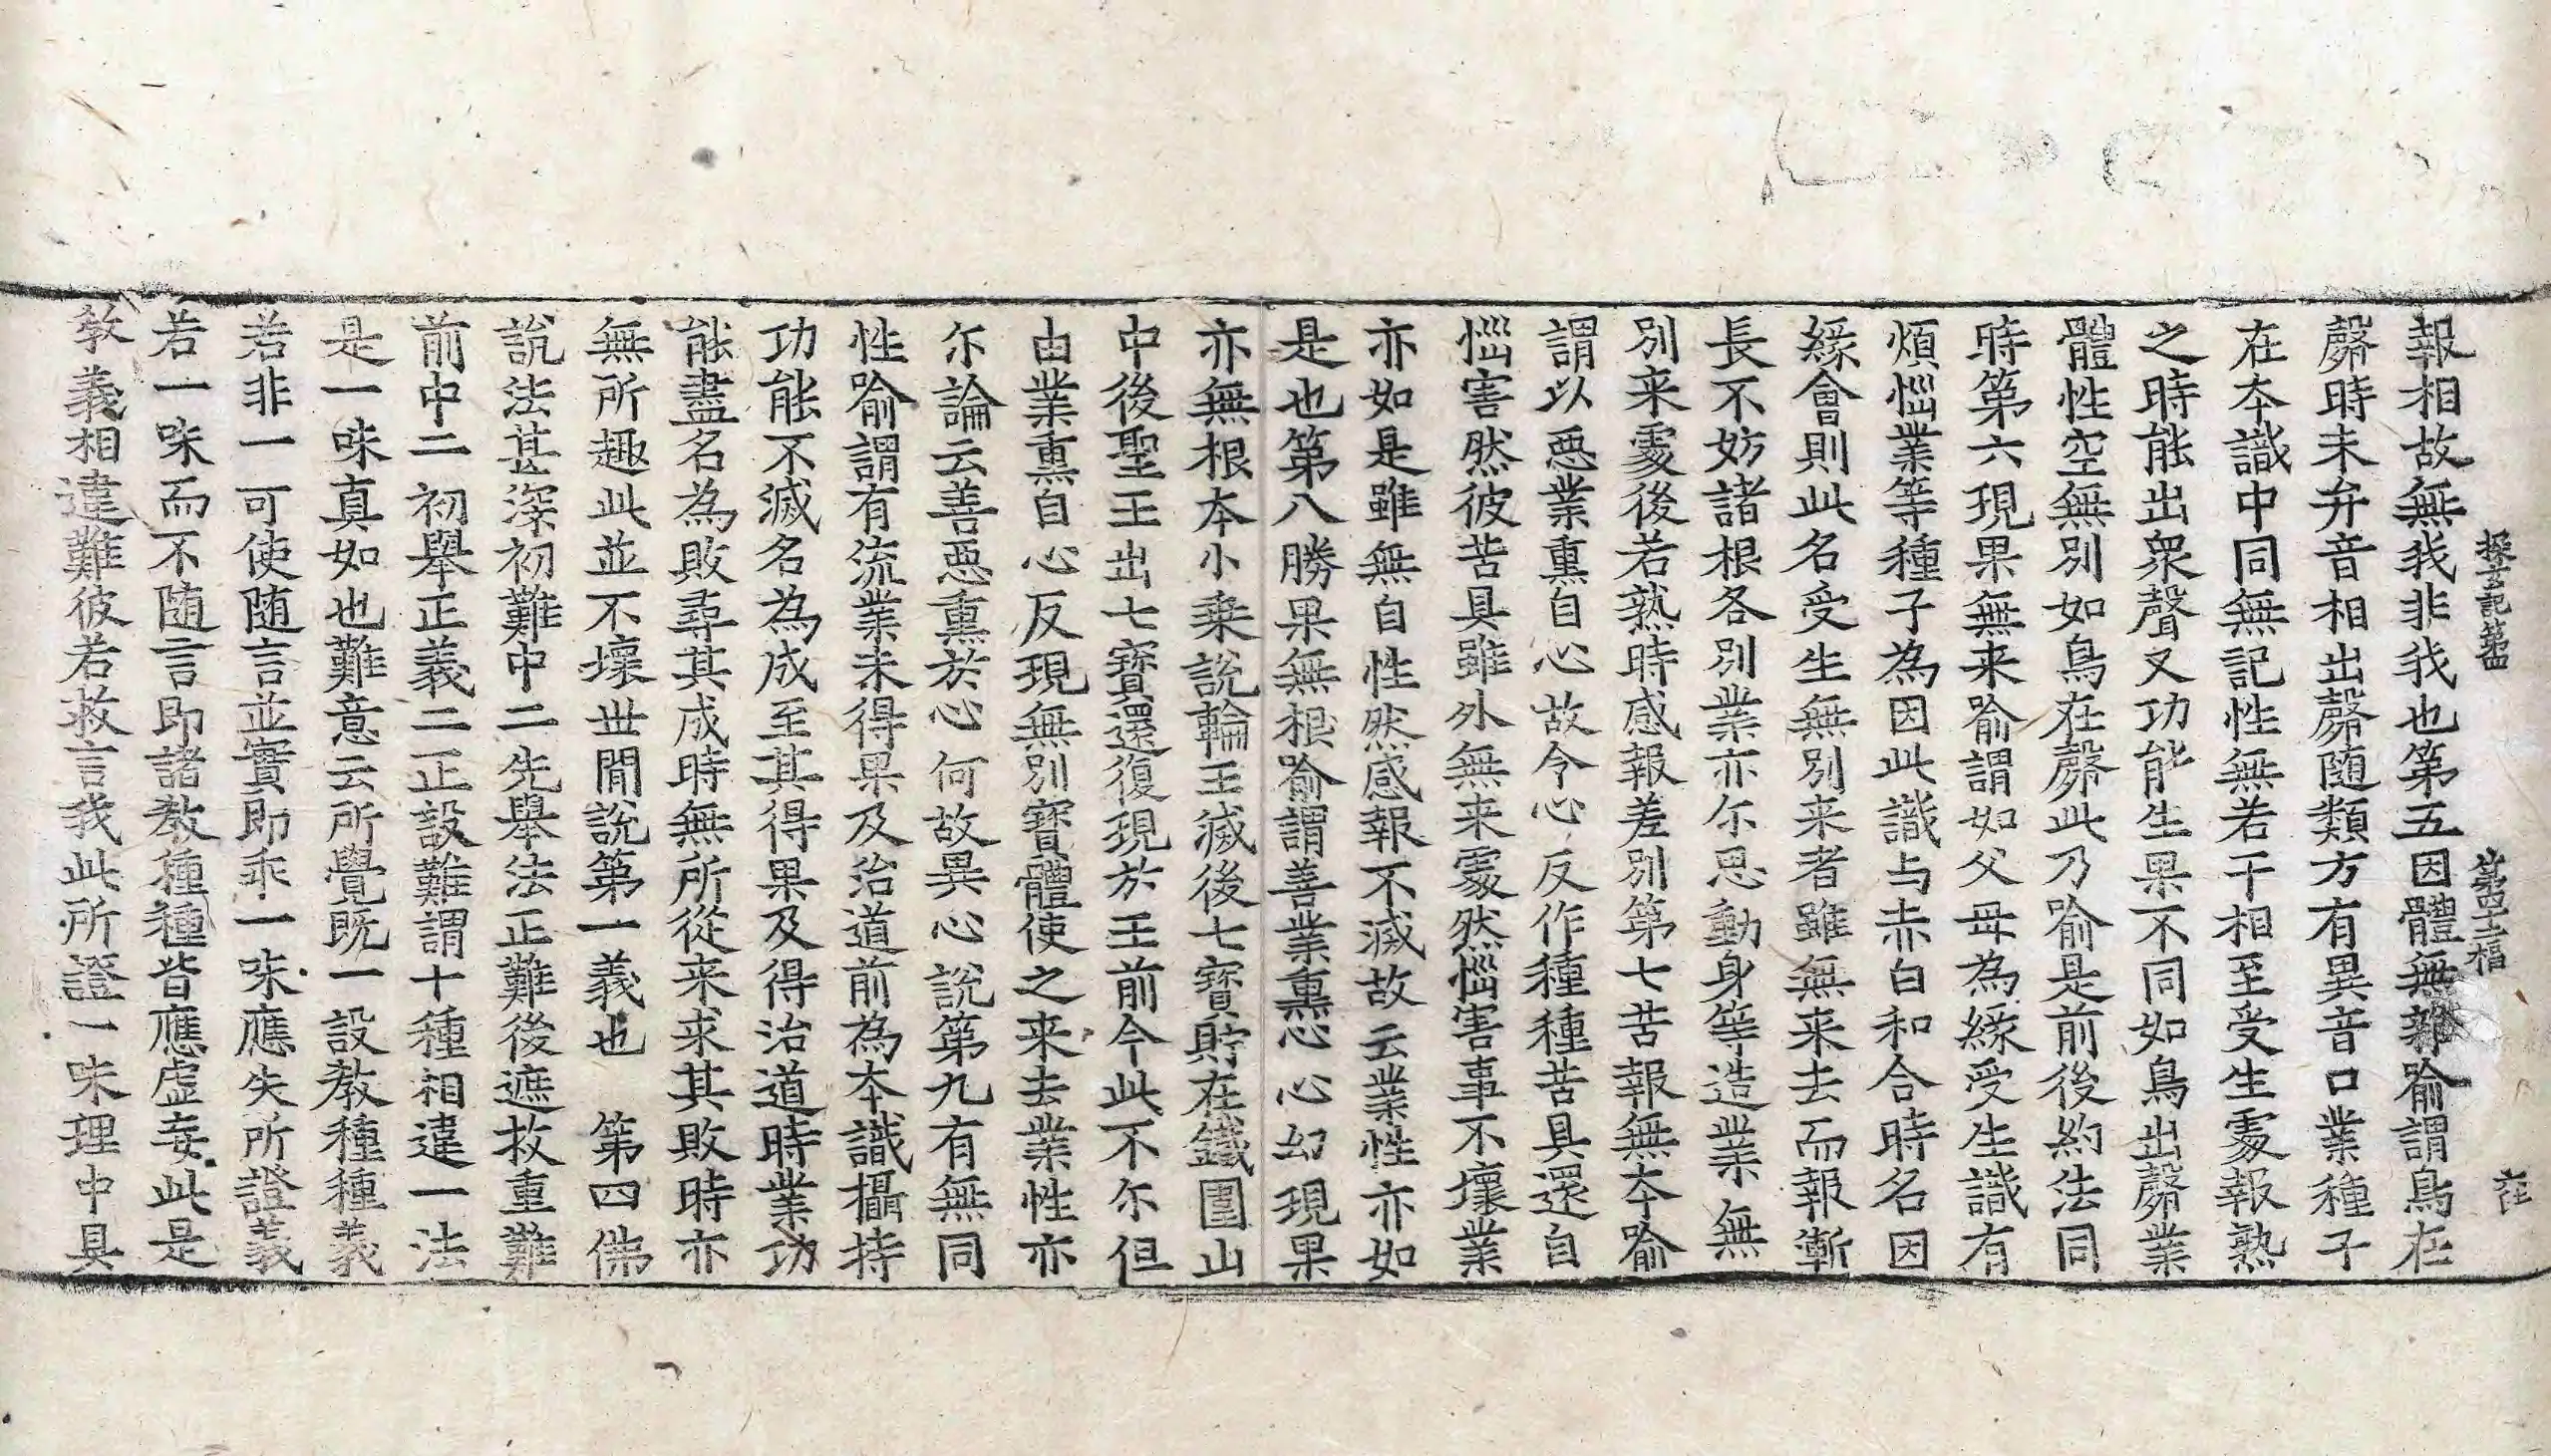 探玄記第四 第四十二福 在
報相故無我非我也第五因體無雜喻謂鳥在
㲉時未弁音相出㲉随類方有異音口業種子
在本識中同無記性無若干相至受生處報熟
之時能出衆聲又功能生果不同如鳥出㲉業
體性空無別如鳥在㲉此乃喻是前後約法同
時第六現果無来喻謂如父母為緣受生識有
煩惱業等種子為因此識与赤白和合時名因
緣會則此名受生無別来者雖無来去而報漸
長不妨諸根各別業亦尓思動身等造業無
別来處後若熟時感報差別第七苦報無本喻
謂以惡業熏自心故令心反作種種苦具還自
惱害然彼苦具雖外無来處然惱害事不壞業
亦如是雖無自性然感報不滅故云業性亦如
是也第八勝果無根喻謂善業熏心心幻現果
亦無根本小乗說輪王滅後七寳貯在鐵圍山
中後聖王出七寳還復現於王前今此不尓但
由業熏自心反現無別寳體使之来去業性亦
尓論云善惡熏於心何故異心說第九有無同
性喻謂有流業未得果及治道前為本識攝持
功能不滅名為成至其得果及得治道時業功
能盡名為敗尋其成時無所從来求其敗時亦
無所趣此並不壞世間說第一義也 第四佛
說法甚深初難中二先舉法正難後遮救重難
前中二初舉正義二正設難謂十種相違一法
是一味真如也難意云所覺既一設教種種義
若非一可使随言並實即乖一味應失所證義
若一味而不随言即諸教種種皆應虛妄此是
教義相違難彼若救言我此所證一味理中具